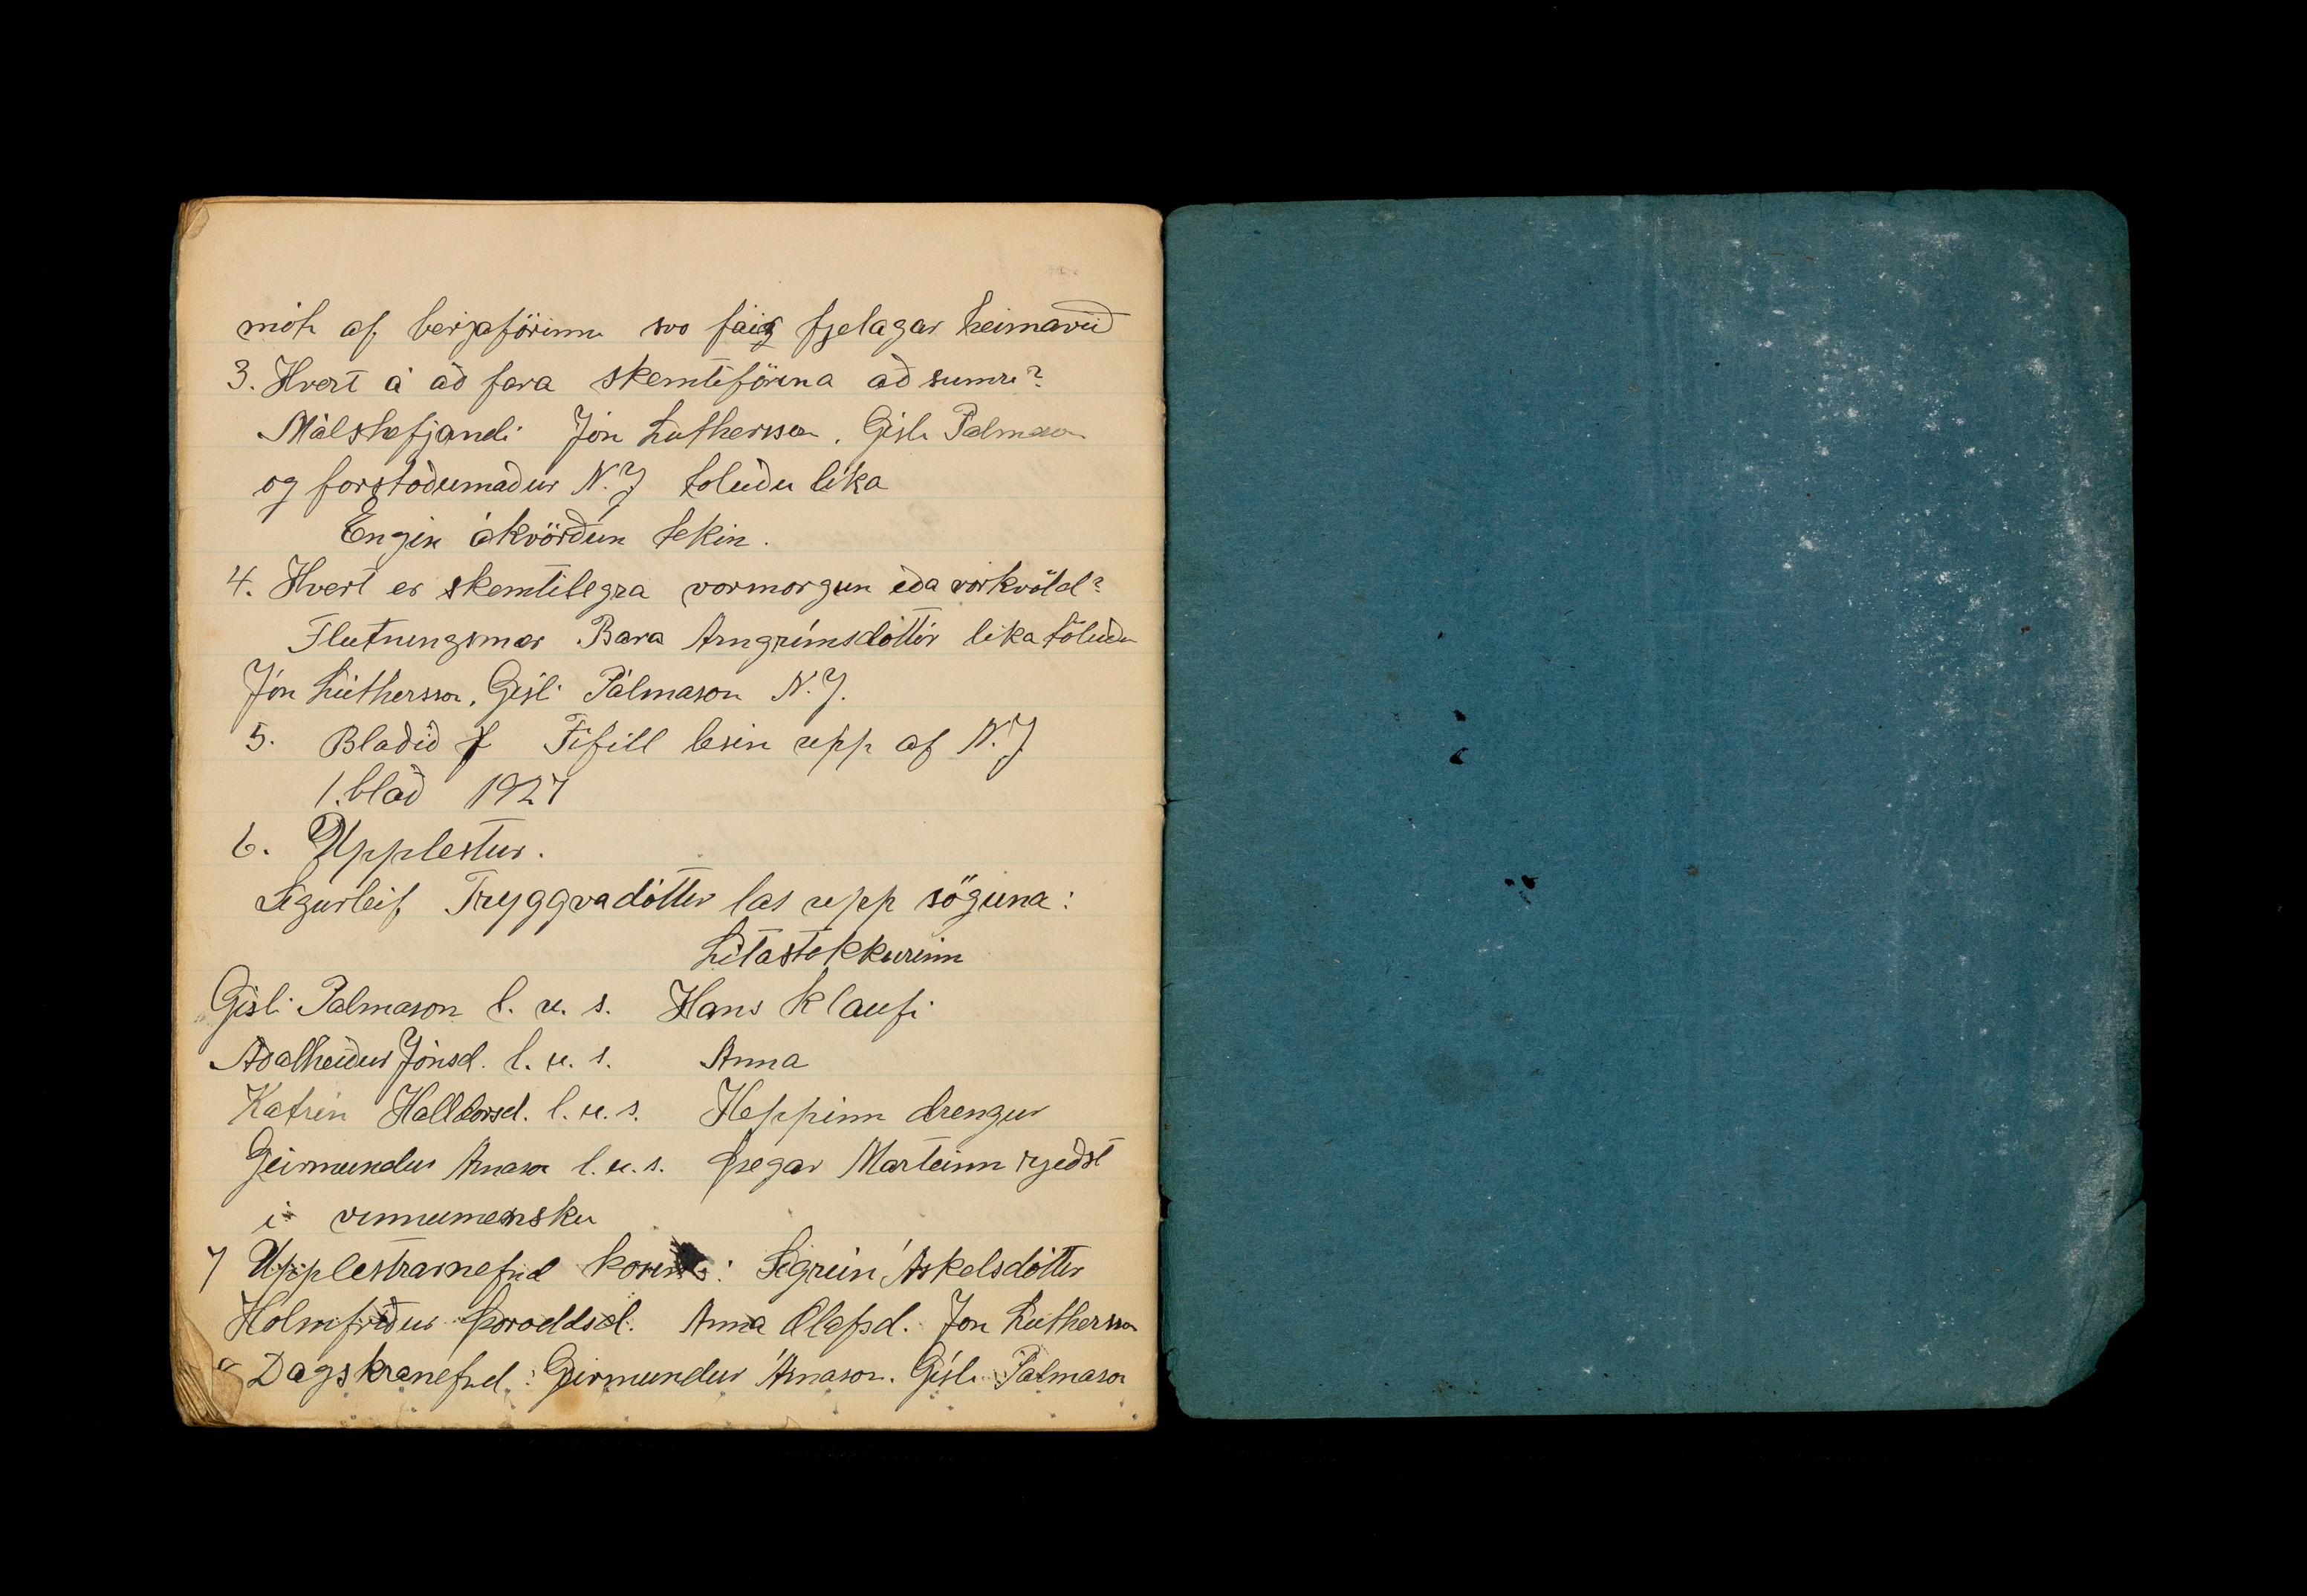 móti af berjaförinni svo fáir fjelagar heimavið
3. Hvert á að fara skemtiförina að sumri?
Málshefjandi Jón Luthersson. Gísli Palmason
og forstöðumaður N.J toluðu líka
Engin ákvörðun tekin.
4. Hvert er skemtilegra vormorgun eða vorkvöld?
Flutningsmær Bara Arngrímsdóttir lika töluðu
Jón Lúthersson, Gisli Pálmason N.J.
5. Bladið Fifill lesin upp af N.J
1. blað 1927
6. Upplestur.
Sigurleif Tryggvadóttir las upp söguna:
Litastokkurinn
Gisli Palmason l. u. s. Hans klaufi
Aðalheiður Jónsd. l. u. s. Anna
Katrin Halldorsd. l. u. s. Heppinn drengur
Geirmundur Arnason l. u. s. Þegar Marteinn rjeðst
i vinnumensku
7 Upplestrarnefnd kosin: Sigrún Áskelsdóttir
Holmfriður Þoroddsd. Anna Olafsd. Jon Luthersson
Dagskranefnd: Geirmundur Árnason. Gísli Palmason